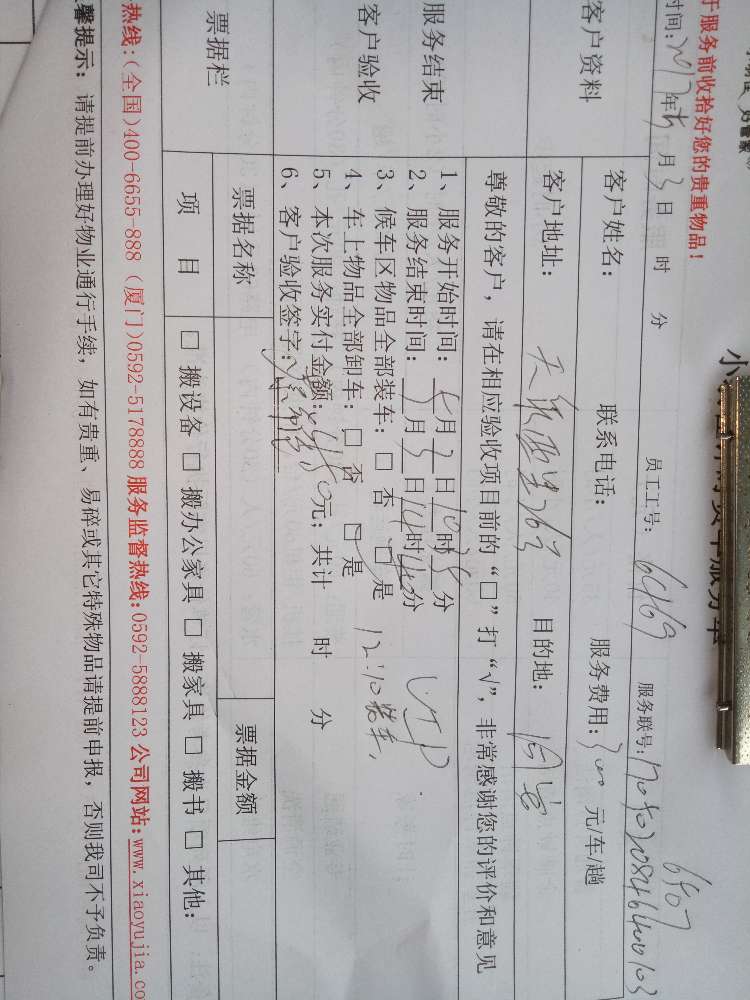 于服务前收拾好您的贵重物品！
时间：2017年5月3日 时 分 员工工号：6469 服务联号：
6507
客户资料
客户姓名： 联系电话： 服务费用：300 元/车/趟
客户地址： 目的地：同安
尊敬的客户，请在相应验收项目前的“□”打“√”，非常感谢您的评价和意见
服务结束
客户验收
1、服务开始时间：5月3日10时 分
2、服务结束时间：5月3日14时40分 VIP
3、候车区物品全部装车：□ 否 □ 是 12:10装车、
4、车上物品全部卸车：□ 否 □ 是
5、本次服务实付金额： 元；共计 时 分
6、客户验收签字：
票据栏
票据名称 票据金额
项 目 □ 搬设备 □ 搬办公家具 □ 搬家具 □ 搬书 □ 其他：
热线：（全国）400-6655-888（厦门）0592-5178888 服务监督热线：0592-5888123 公司网站：www.xiaoyujia.co
馨提示：请提前办理好物业通行手续，如有贵重、易碎或其它特殊物品请提前申报，否则我司不予负责。